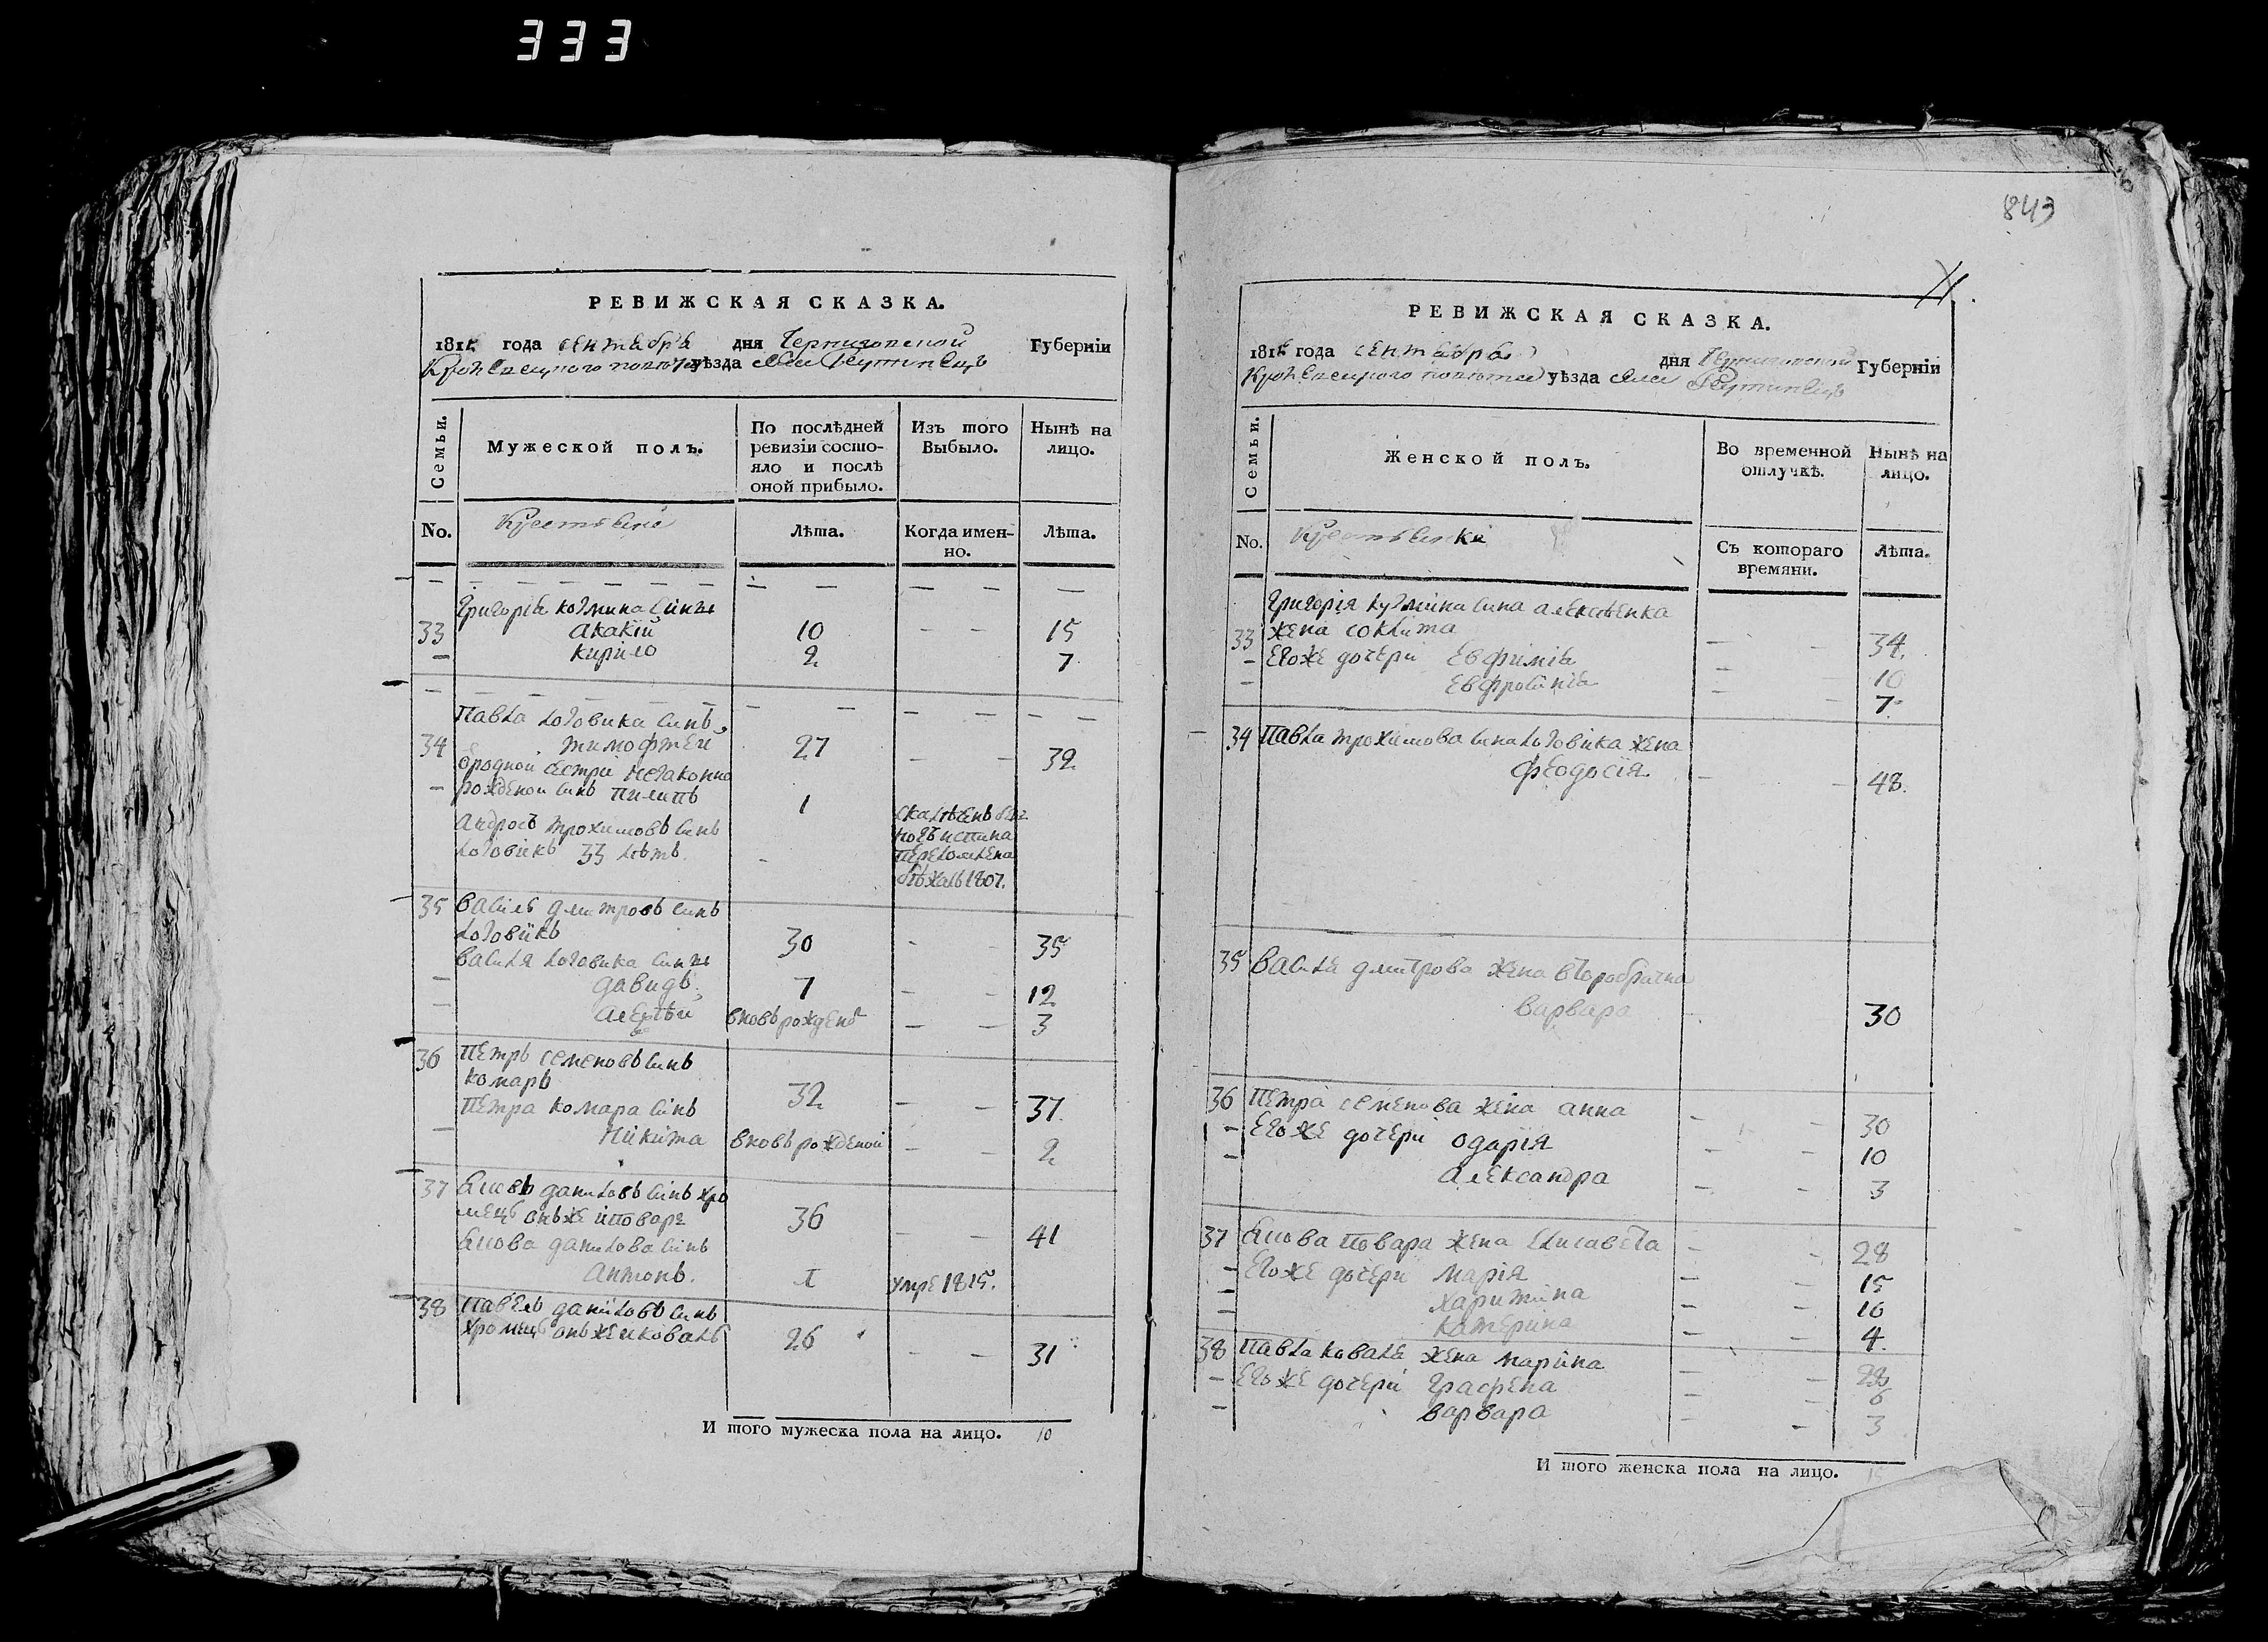 333
843
РЕВИЖСКАЯ СКАЗКА.
181 года сентабра дня Черниговской Губерніи
Кролевецкого повѣта уѣзда села Реутинецъ
Семьи.
Мужеской полъ.
По послѣдней ревизіи состояло и послѣ оной прибыло.
Изъ того Выбыло.
Нынѣ на лицо.
No.
Крестьяне
Лѣта.
Когда именно.
Лѣта.
Григорія козмина сины
33 Акакій 10 — — 15
— кирило 2 7
Павла логовика синъ
34 тимофтей 27 — — 32
сродной сестри незаконно
— рожденой синъ пилипъ 1
Андрось трохимовъ синъ
логовикъ 33 лѣтъ
перелομлена
бѣжалъ 1807.
35 василь дмитровъ синъ
логовикъ 30 — — 35
василя логовика сины
— давидъ 7 — — 12
— вновь рожденъ — — 3
36 Петръ семеновъ синъ
комаръ 32 — — 37
Петра комара синъ
— Никита вновь рожденой — — 2
37 Яковъ даниловъ синъ хро
мецъ онъ же и поваръ 36 — — 41
Якова данилова синъ
Антонъ. умре 1815.
38 Павелъ даниловъ синъ
хромецъ онъ же и коваль 26 — — 31
И того мужеска пола на лицо. 10
РЕВИЖСКАЯ СКАЗКА.
181 года сентабра дня Черниговской Губерніи
Кролевецкого повѣта уѣзда села Реутинецъ
Семьи.
Женской полъ.
Во временной отлучкѣ.
Нынѣ на лицо.
No.
Крестьянки
Съ котораго времяни.
Лѣта.
Григорія кузмина сина алексѣенка
33 жена — — 34.
— Его же дочери Евфимія — — 10
— Евфросинія — — 7.
34 Павла трохимова сина логовика жена
феодосія — — 48.
35 василя дмитрова жена второбрачна
варвара 30
36 Петра семенова жена анна — — 30
— Его же дочери одарія — — 10
— Александра — — 3
37 Якова повара жена Елисавета — — 28
— Его же дочери марія — — 15
— харитина — — 10
— катерина — — 4.
38 Павла коваля жена марина — — 28
— Его же дочери Грасфена — — 6
— варвара — — 3
И того женска пола на лицо. 15